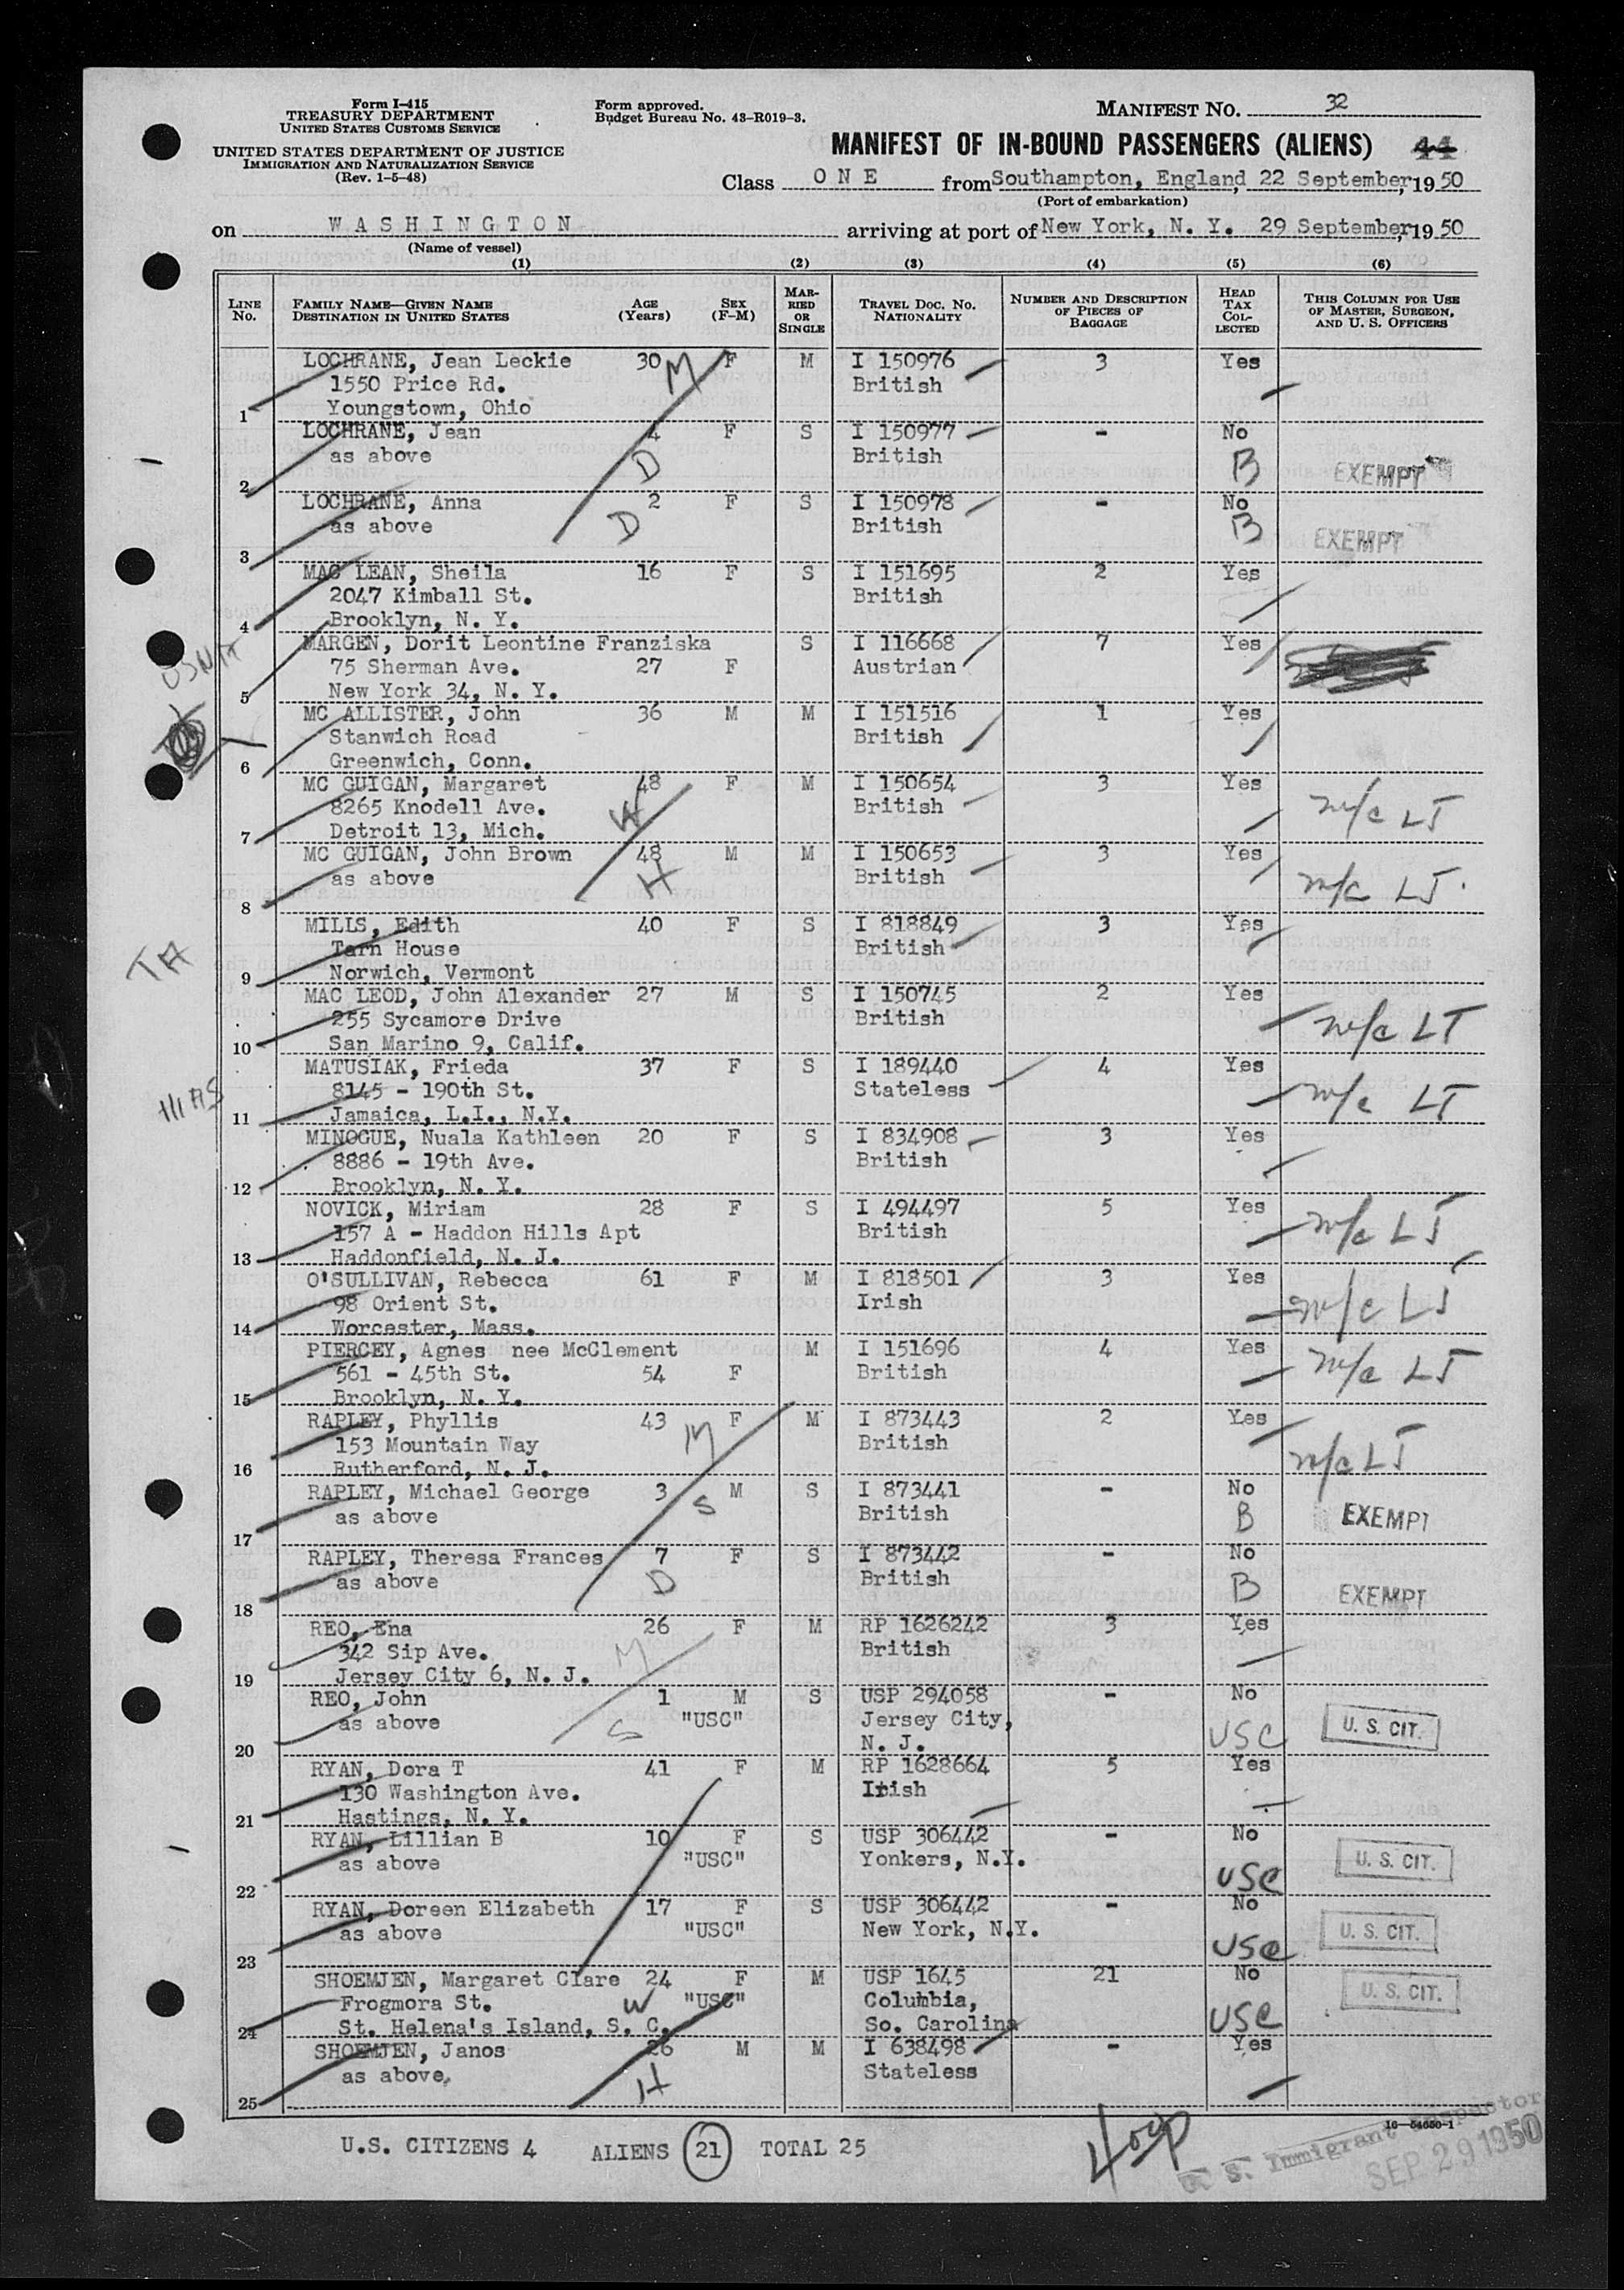 Form I-415
TREASURY DEPARTMENT
UNITED STATES CUSTOMS SERVICE
UNITED STATES DEPARTMENT OF JUSTICE
IMMIGRATION AND NATURALIZATION SERVICE
(Rev. 1-5-48)
Form approved.
Budget Bureau No. 43-R019-3.
MANIFEST NO. 32
MANIFEST OF IN-BOUND PASSENGERS (ALIENS) 44
Class ONE from Southampton, England, 22 September, 1950
(Port of embarkation)
on WASHINGTON arriving at port of New York, N. Y. 29 September, 1950
(Name of vessel)
(1) (2) (3) (4) (5) (6)
LINE NO.
FAMILY NAME—GIVEN NAME
DESTINATION IN UNITED STATES
AGE (YEARS)
SEX (F-M)
MARRIED OR SINGLE
TRAVEL DOC. NO.
NATIONALITY
NUMBER AND DESCRIPTION OF PIECES OF BAGGAGE
HEAD TAX COLLECTED
THIS COLUMN FOR USE OF MASTER, SURGEON, AND U. S. OFFICERS
LOCHRANE, Jean Leckie 30 M F M I 150976 3 Yes
1550 Price Rd. British
1 Youngstown, Ohio
LOCHRANE, Jean 4 F S I 150977 - No
as above D British B EXEMPT
2
LOCHRANE, Anna 2 F S I 150978 - No
as above D British B EXEMPT
3
MAC LEAN, Sheila 16 F S I 151695 2 Yes
2047 Kimball St. British
4 Brooklyn, N. Y.
MARGEN, Dorit Leontine Franziska S I 116668 7 Yes
75 Sherman Ave. 27 F Austrian
5 New York 34, N. Y.
MC ALLISTER, John 36 M M I 151516 1 Yes
Stanwich Road British
6 Greenwich, Conn.
MC GUIGAN, Margaret 48 F M I 150654 3 Yes
8265 Knodell Ave. W British m/c LT
7 Detroit 13, Mich.
MC GUIGAN, John Brown 48 M M I 150653 3 Yes
as above H British m/c LT
8
MILLS, Edith 40 F S I 818849 3 Yes
TA Tarn House British
9 Norwich, Vermont
MAC LEOD, John Alexander 27 M S I 150745 2 Yes
255 Sycamore Drive British m/c LT
10 San Marino 9, Calif.
MATUSIAK, Frieda 37 F S I 189440 4 Yes
HIAS 8145 - 190th St. Stateless m/c LT
11 Jamaica, L.I., N.Y.
MINOGUE, Nuala Kathleen 20 F S I 834908 3 Yes
8886 - 19th Ave. British
12 Brooklyn, N. Y.
NOVICK, Miriam 28 F S I 494497 5 Yes
157 A - Haddon Hills Apt British m/c LT
13 Haddonfield, N. J.
O'SULLIVAN, Rebecca 61 F M I 818501 3 Yes
98 Orient St. Irish m/c LT
14 Worcester, Mass.
PIERCEY, Agnes nee McClement M I 151696 4 Yes
561 - 45th St. 54 F British m/c LT
15 Brooklyn, N. Y.
RAPLEY, Phyllis 43 M F M I 873443 2 Yes
153 Mountain Way British m/c LT
16 Rutherford, N. J.
RAPLEY, Michael George 3 S M S I 873441 - No
as above British B EXEMPT
17
RAPLEY, Theresa Frances 7 F S I 873442 - No
as above D British B EXEMPT
18
REO, Ena 26 F M RP 1626242 3 Yes
342 Sip Ave. M British
19 Jersey City 6, N. J.
REO, John 1 M S USP 294058 - No
as above S "USC" Jersey City, USC U. S. CIT.
20 N. J.
RYAN, Dora T 41 F M RP 1628664 5 Yes
130 Washington Ave. Irish
21 Hastings, N. Y.
RYAN, Lillian B 10 F S USP 306442 - No
as above "USC" Yonkers, N.Y. USC U. S. CIT.
22
RYAN, Doreen Elizabeth 17 F S USP 306442 - No
as above "USC" New York, N.Y. USC U. S. CIT.
23
SHOEMJEN, Margaret Clare 24 F M USP 1645 21 No
Frogmora St. W "USC" Columbia, USC U. S. CIT.
24 St. Helena's Island, S. C. So. Carolina
SHOEMJEN, Janos 26 M M I 638498 - Yes
as above. H Stateless
25
16-54650-1
U.S. CITIZENS 4 ALIENS 21 TOTAL 25
U. S. Immigrant Inspector
SEP 29 1950